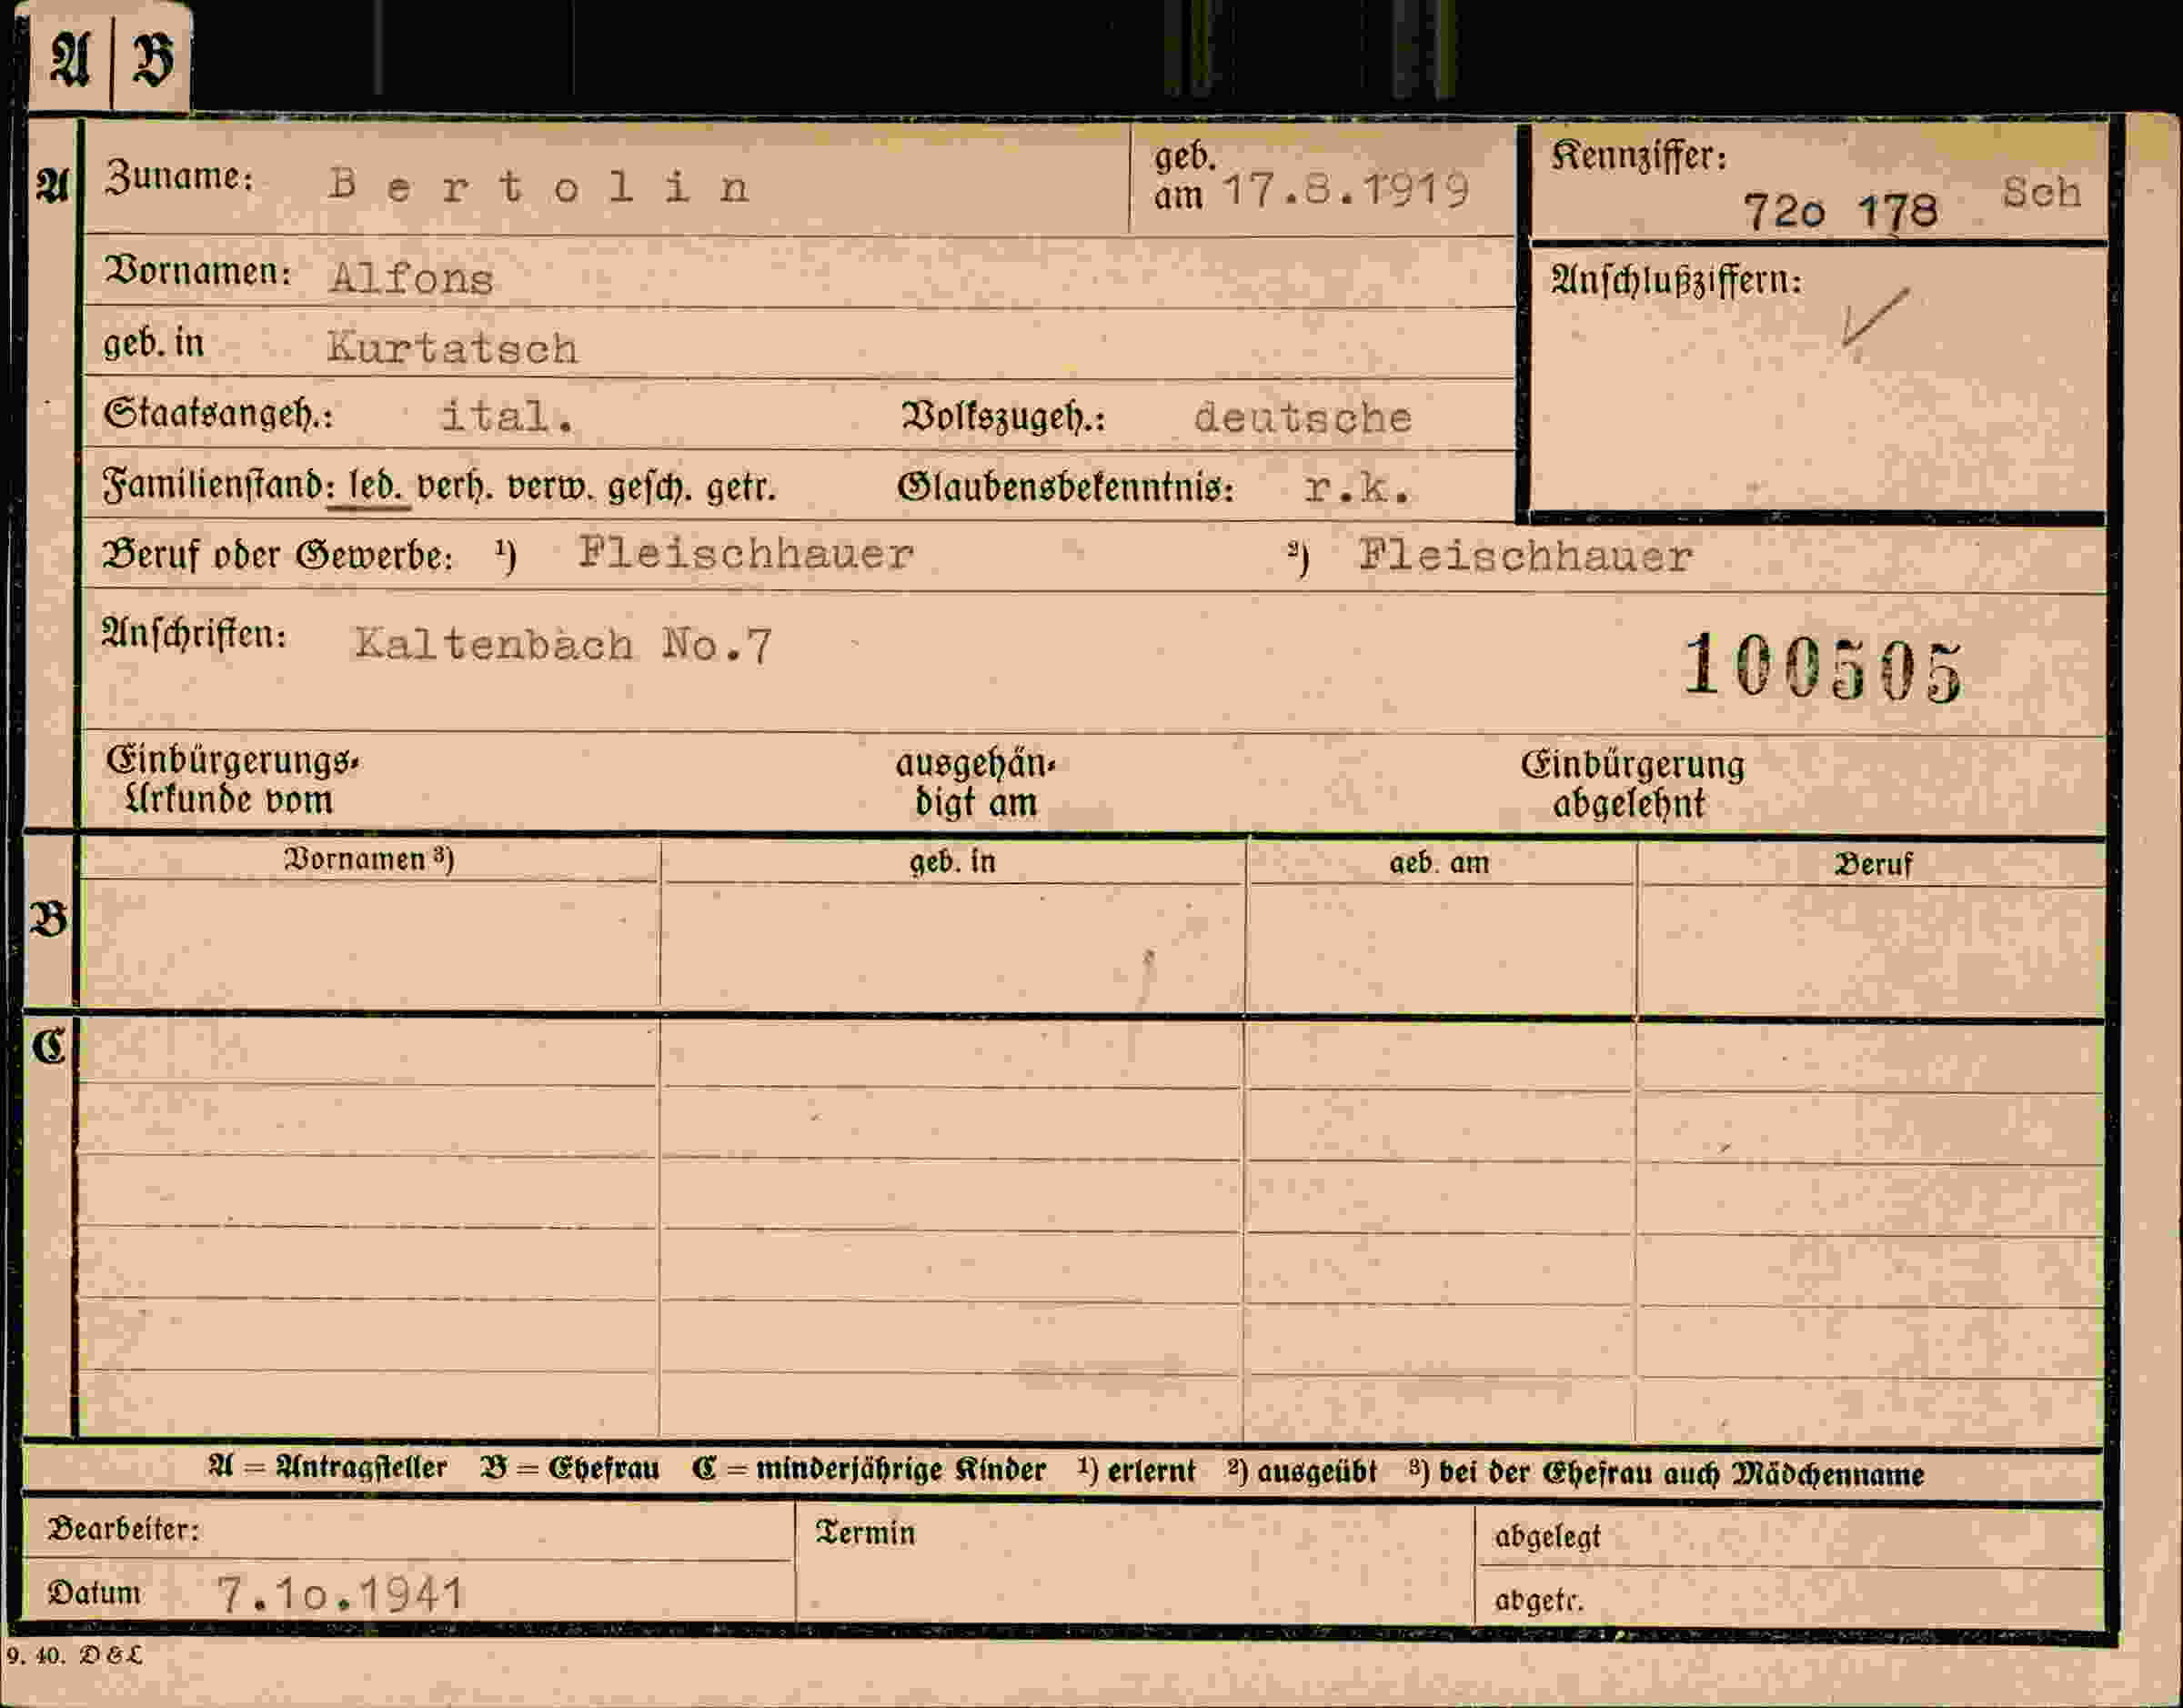 A | B
A
Zuname: Bertolin geb. am 17.8.1919
Kennziffer: 72o 178 Sch
Vornamen: Alfons
Anschlußziffern:
geb. in Kurtatsch
Staatsangeh.: ital. Volkszugeh.: deutsche
Familienstand: led. verh. verw. gesch. getr. Glaubensbekenntnis: r.k.
Beruf oder Gewerbe: ¹) Fleischhauer ²) Fleischhauer
Anschriften: Kaltenbach No.7
100505
Einbürgerungs-Urkunde vom ausgehän-digt am Einbürgerung abgelehnt
B
Vornamen ³) geb. in geb. am Beruf
C
A = Antragsteller B = Ehefrau C = minderjährige Kinder ¹) erlernt ²) ausgeübt ³) bei der Ehefrau auch Mädchenname
Bearbeiter: Termin abgelegt
Datum 7.1o.1941 abgetr.
9. 40. D & L